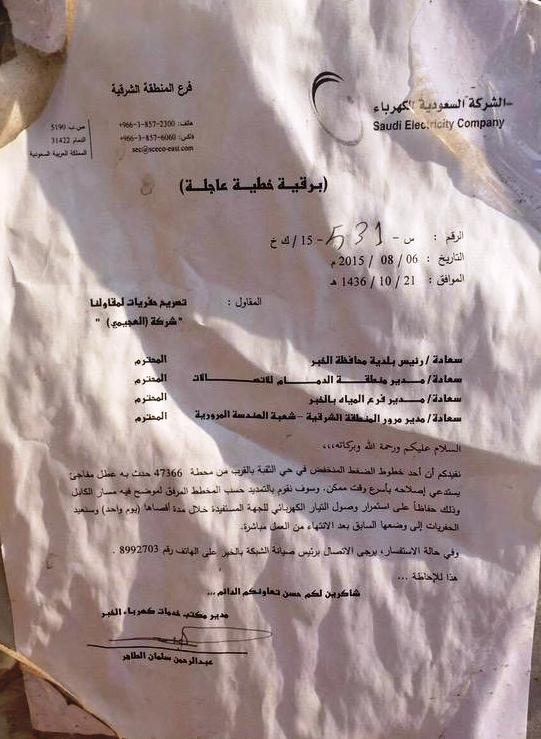 الشركة السعودية للكهرباء
Saudi Electricity Company
فرع المنطقة الشرقية
هاتف: 2300-857-3-966+
فاكس: 6060-857-3-966+
sec@sceco-east.com
ص.ب 5190
الدمام 31422
المملكة العربية السعودية
(برقية خطية عاجلة)
الرقم : س - 531 - 15 / ك خ
التاريخ : 06 / 08 / 2015 م
الموافق : 21 / 10 / 1436 هـ
المقاول : تصريح حفريات لمقاولنا
"شركة (العجيمي) "
سعادة / رئيس بلدية محافظة الخبر المحترم
سعادة / مدير منطقة الدمام للاتصالات المحترم
سعادة / مدير فرع المياه بالخبر المحترم
سعادة / مدير مرور المنطقة الشرقية – شعبة الهندسة المرورية المحترم
السلام عليكم ورحمة الله وبركاته،،،
نفيدكم أن أحد خطوط الضغط المنخفض في حي الثقبة بالقرب من محطة 47366 حدث به عطل مفاجئ
يستدعي إصلاحه بأسرع وقت ممكن. وسوف نقوم بالتمديد حسب المخطط المرفق لموضح فيه مسار الكابل
وذلك حفاظاً على استمرار وصول التيار الكهربائي للجهة المستفيدة خلال مدة أقصاها (يوم واحد) وسنعيد
الحفريات إلى وضعها السابق بعد الانتهاء من العمل مباشرة.
وفي حالة الاستفسار، يرجى الاتصال برئيس صيانة الشبكة بالخبر على الهاتف رقم 8992703 .
هذا للإحاطة ...
شاكرين لكم حسن تعاونكم الدائم ...
مدير مكتب خدمات كهرباء الخبر
عبدالرحمن سلمان الطاهر